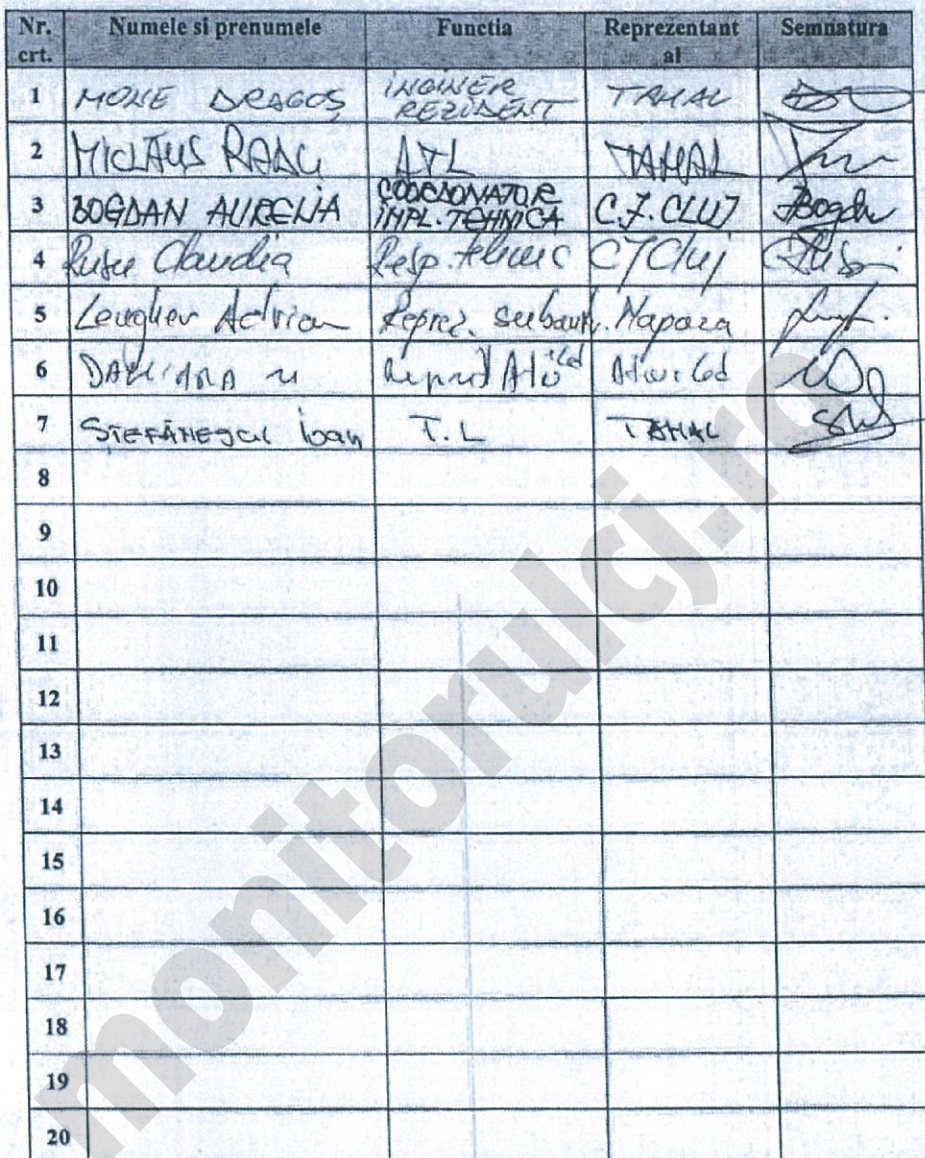 Nr. crt. Numele si prenumele Functia Reprezentant al Semnatura
1 MONE DRAGOȘ INGINER REZIDENT TAHAL
2 MICLĂUȘ RADU ATL TAHAL
3 BOGDAN AURELIA COORDONATOR IMPL. TEHNICA C.J. CLUJ Bogdan
4 Rusu Claudia Resp. tehnic CJ Cluj
5 Adrian Reprez. Napoca
6
7 ȘTEFĂNESCU Ioan T.L TAHAL
8
9
10
11
12
13
14
15
16
17
18
19
20
monitorulcj.ro